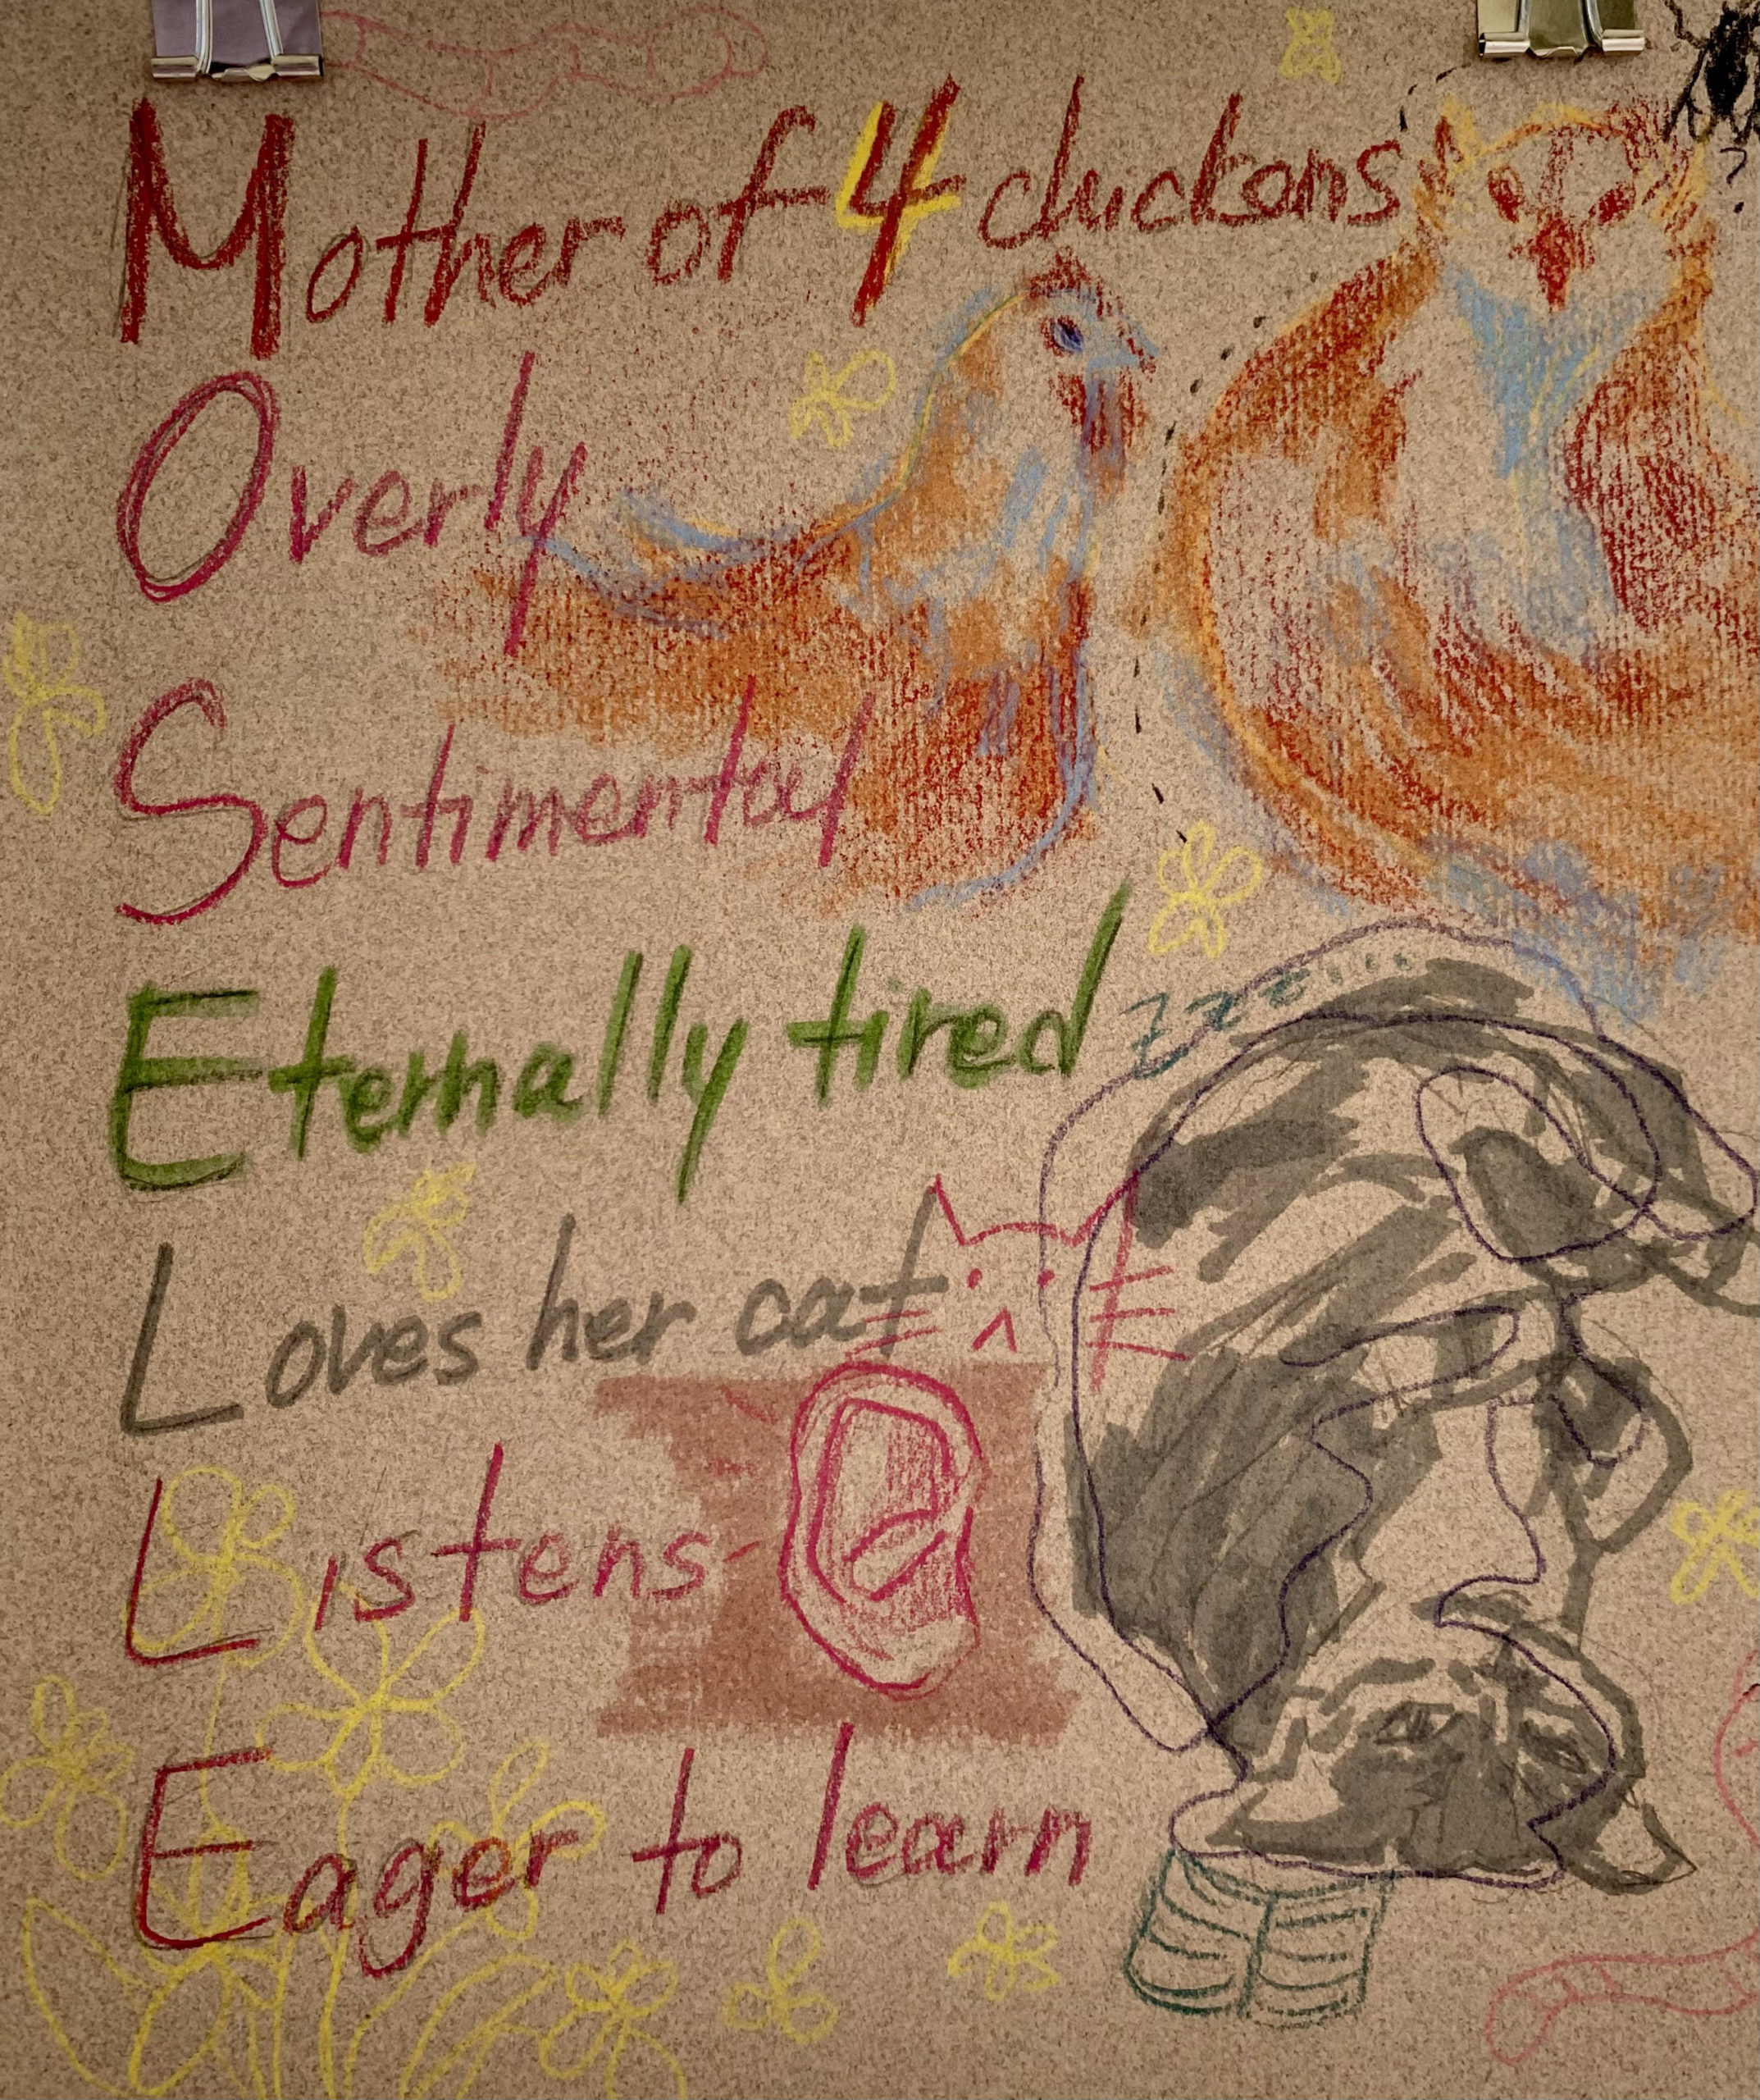 Mother of 4 chickens
Overly
Sentimental
Eternally tired zzz
Loves her cat
Listens
Eager to learn